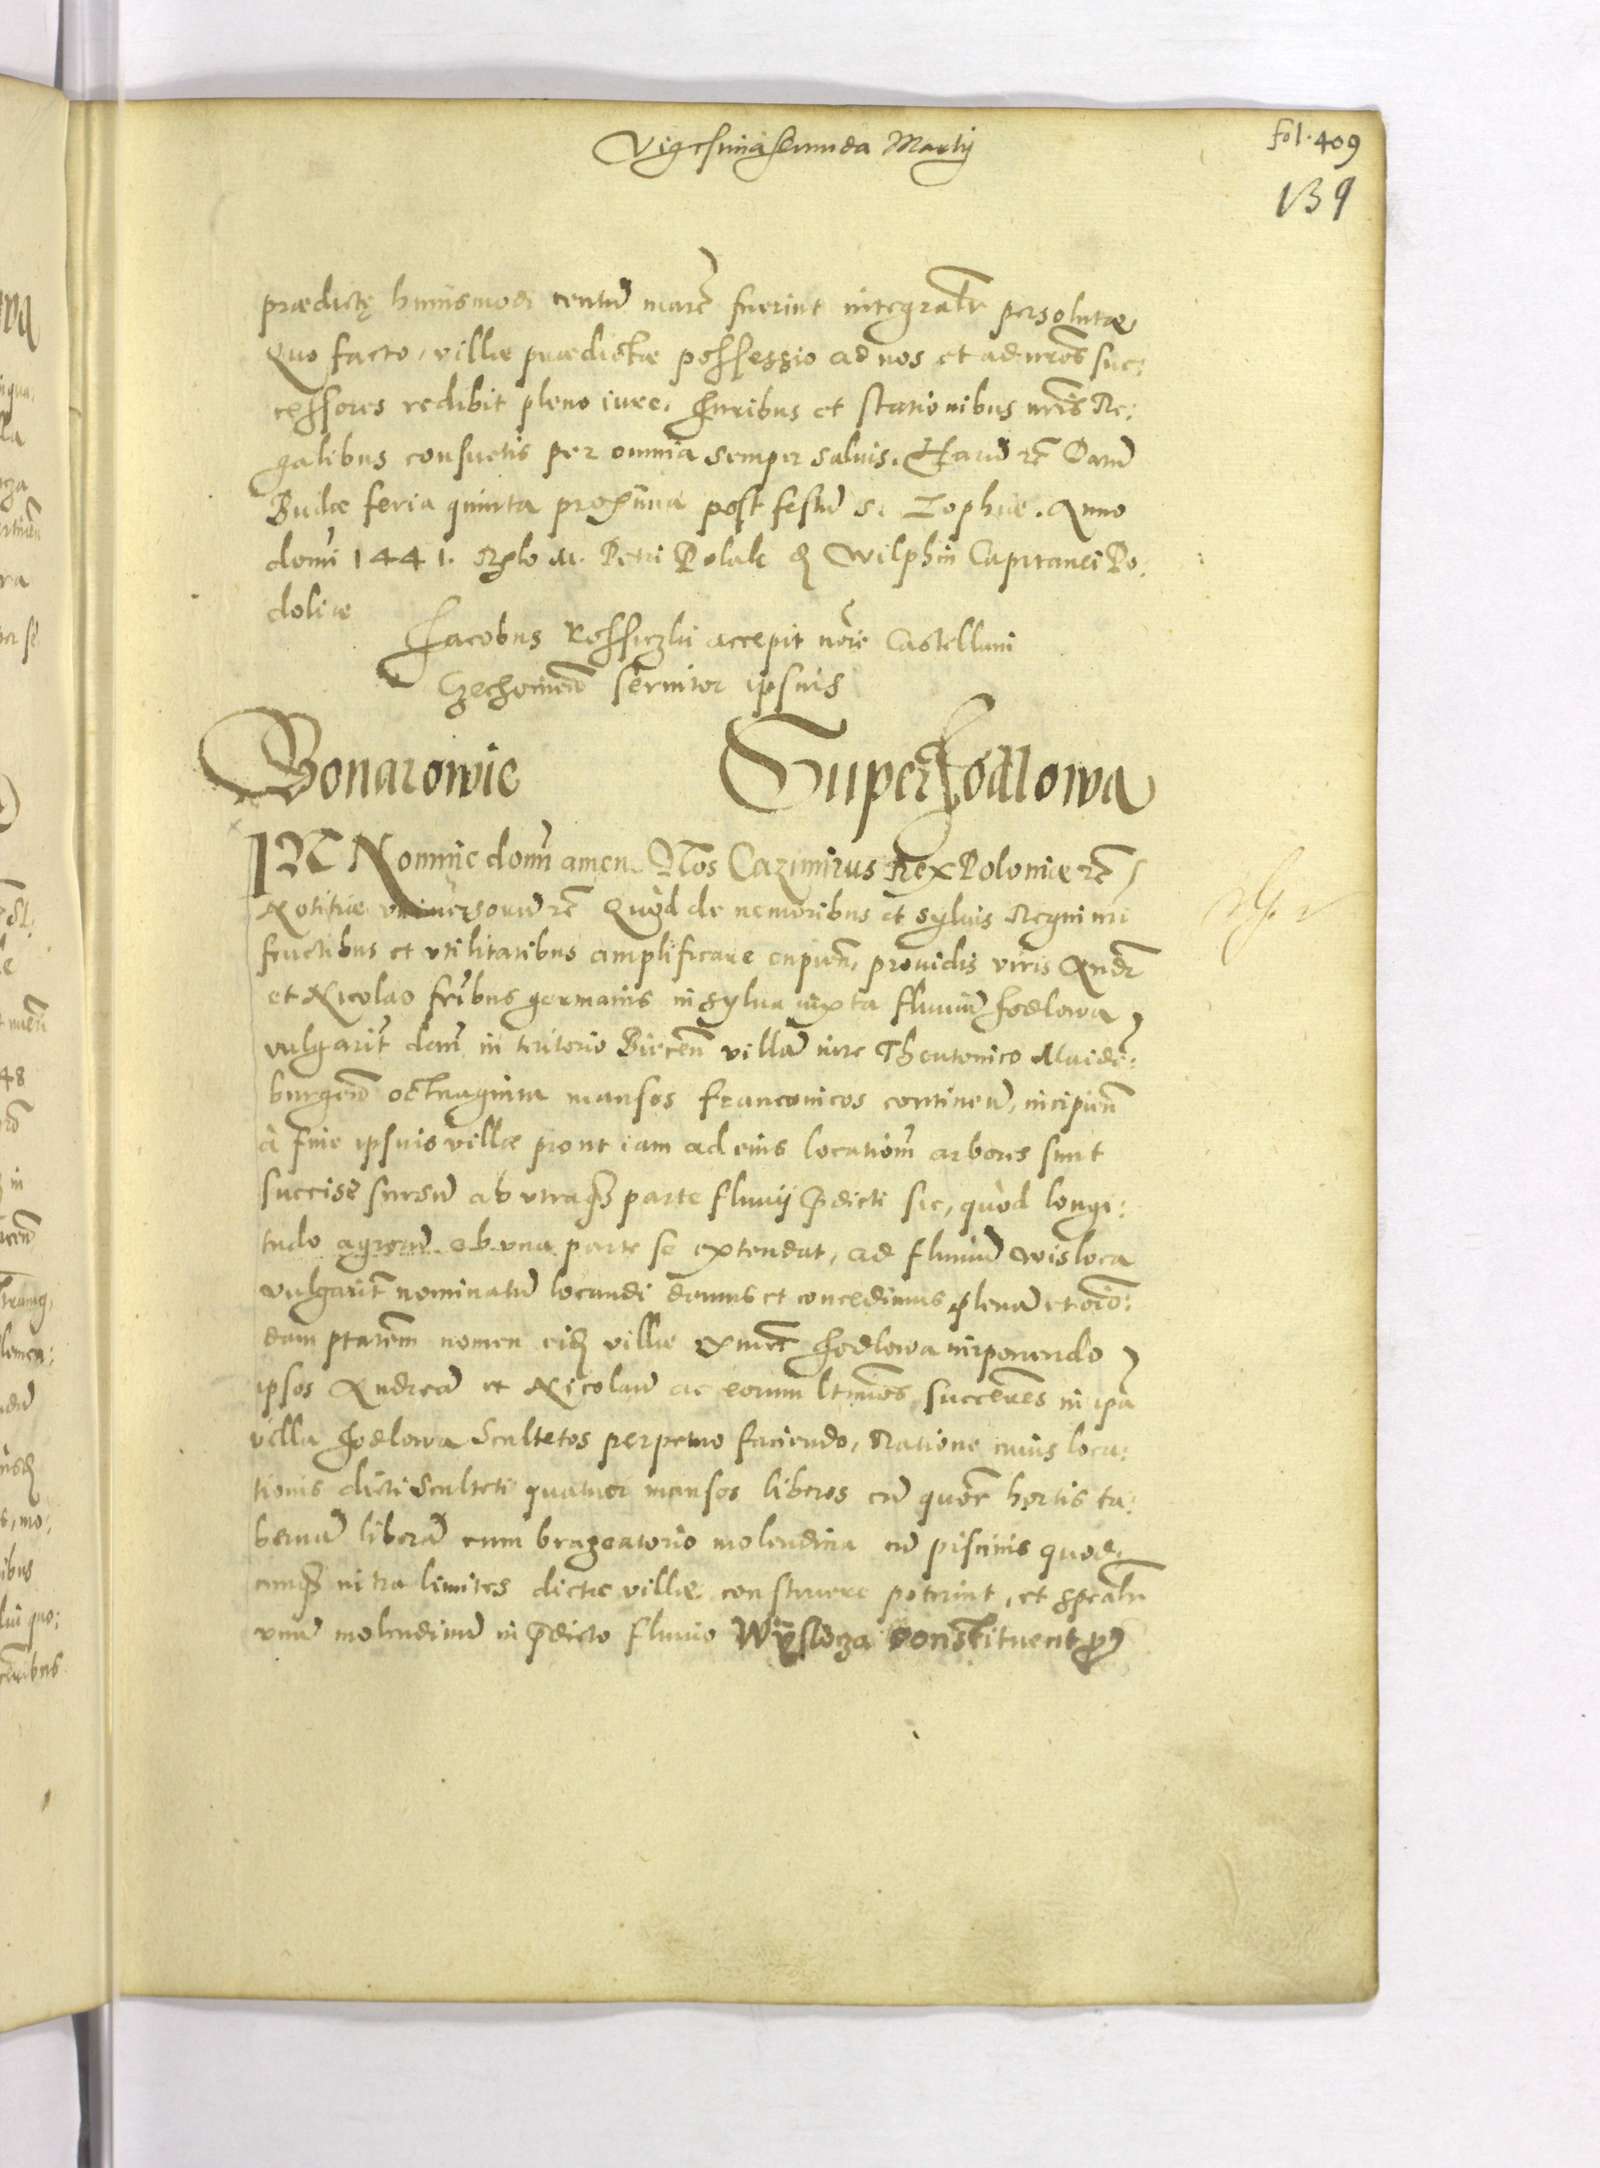 Vigesimasecunda Martij
fol. 409
139
prædictę huiusmodi centũ marc̃ fuerint integralr̃ persolutæ,
Quo facto, villæ prædictæ possessio ad nos et ad nr̃os suc:
cessores redibit pleno iure, Juribus et stationibus nr̃is Re:
galibus consuetis per omnia semper saluis. Harũ rc̃ Datũ
Budæ feria quinta proxima post festũ S. Zophiæ. Anno
domĩ 1441. Petri Polak Capitanei Po:
doliæ
Jacobus accepit nõie Castellani
seruitor ipsius
Bonarowie Super Jodlowa
IN Nomine domĩ amen. Nos Cazimirus Rex Poloniæ rc̃
Notitiæ vniuersorũ rc̃ Quòd de nemoribus et syluis Regni nr̃i
fructibus et vtilitatibus amplificare cupien̄, prouidis viris Andr̃
et Nicolao fr̃ibus germanis in sylua iuxta fluuiũ Jodlowa
vulgarit̃ dcam̃ in teritorio Biecen̄ villã iure Theutonico Maide:
burgen̄ octuaginta mansos franconicos continen̄, incipien̄
à fine ipsius villæ prout iam ad eius locationem̃ arbores sunt
succisę sursũ ab vtraq̃ parte fluuij p̃dicti sic, quòd longi:
tudo agrorũ ab vna parte se extendat, ad fluuiũ Wisloca
vulgarit̃ nominatũ locandi damus et concedimus plenã et oĩo:
dam p̃tatem nomen eid̃ villæ ex nũc Jodlowa inponendo
ipsos Andreã et Nicolaũ ac eorum ltĩmos succõres in ipa
villa Jodlowa Scultetos perpetuo faciendo, Ratione cuius loca:
tionis dicti Sculteti quatuor mansos liberos cũ hortis ta:
bernã liberã cum braxeatorio molendina cũ piscinis quod:
cunq̃ intra limites dictæ villæ construere poterint, et spealr̃
vnũ molendinũ in p̃dicto fluuio Wysloga constituent